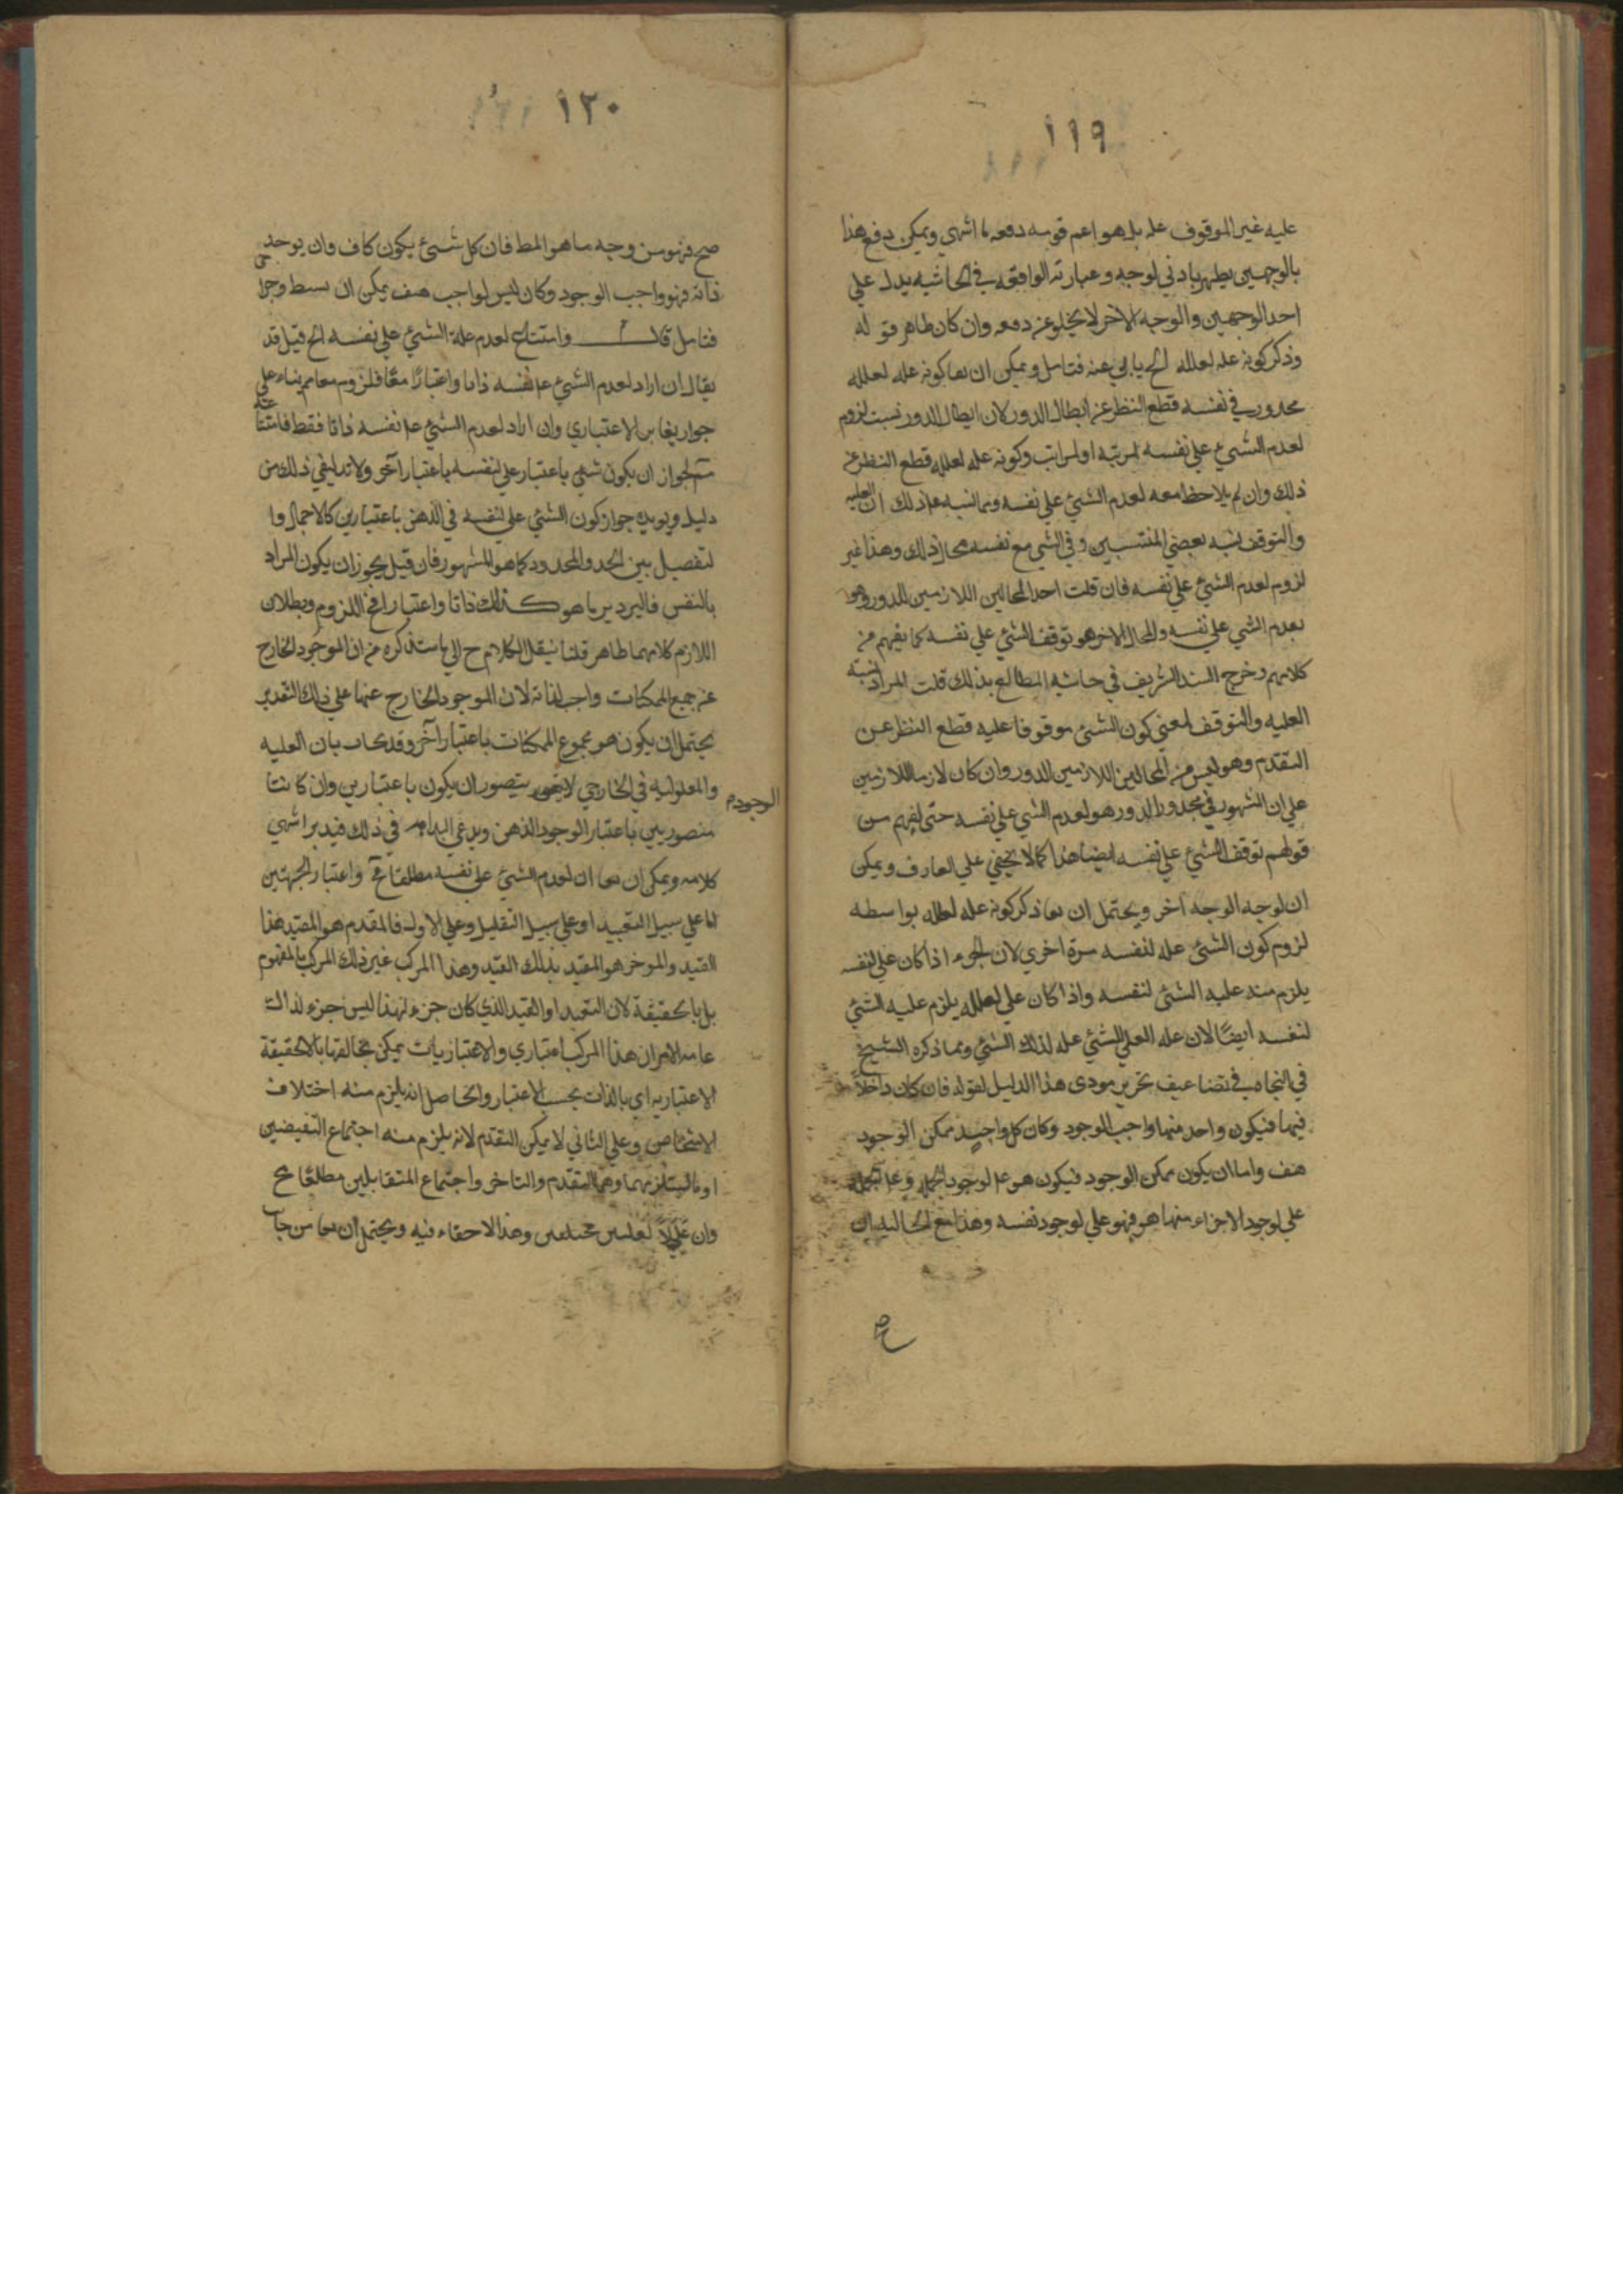 ١١٩
عليه غير الموقوف عليه بل هو اعم قوسه دفعه ما اشهي ويمكن دفع هذا
بالوجهين يظهر بادني لوجه وعبارته الواقعة في الحاشيه يدل علي
احد الوجهين والوجه الاخر لا يخلو عن دفعه وان كان ظاهر قوله
وذكر كونه عله لعلله الخ يابي عنه فتامل ويمكن ان يقا كونه عله لعلله
محذور في نفسه قطع النظر عن ابطال الدور لان ابطال الدور نسبت لزوم
لعدم الشيء علي نفسه لمرتبة او لمراتب وكونه عله لعلله قطع النظر عن
ذلك وان لم يلاحظ معه لعدم الشيئ علي نفسه ومما نسبه علي ذلك ان العليه
والتوقف نسبه بعضي المنتسبين وفي الشي مع نفسه محال ذلك وهذا غير
لزوم لعدم الشيئ علي نفسه فان قلت احد المحالين اللازمين للدور وهو
لعدم الشي علي نفسه والمحال الاخر هو توقف الشيئ علي نفسه كما يفهم من
كلامهم وخرج السند الشريف في حاشيه المطالع بذلك قلت المراد نسبته
العليه والتوقف لمعني كون الشئ موقوفا عليه قطع النظر عن
التقدم وهو ليس من المحالين اللازمين الدور وان كان لازما للازمين
علي ان الشهور في محذور الدور هو لعدم الشي علي نفسه حتي لفهم من
قولهم توقف الشيئ علي نفسه ايضا هذا كما لا يخفي علي العارف ويمكن
ان لوجه الوجه آخر ويحتمل ان يقا ذكر كونه عله لعلله بواسطه
لزوم كون الشئ عله لنفسه مرة اخري لان الجوء اذا كان علي لنفسه
يلزم منه عليه الشئ لنفسه واذا كان علي لعلله يلزم عليه الشئ
لنفسه ايضًا لان عله العلي الشئ عله لذلك الشئ ومما ذكره الشيخ
في النجاه في تضاعيف تحرير مودى هذا الدليل لقوله فان كان داخلاً
فيها فيكون واحد منها واجب الوجود وكان كل واحد ممكن الوجود
هف واما ان يكون ممكن الوجود فيكون هو عله لوجود الجمله وعله الجمله
علي لوجود الاجزاء منها هو فهو علي لوجود نفسه وهذا مع الحاليه ان
صح
١٢٠
صح فهو من وجه ما هو المط فان كل شيئ يكون كاف وان يوجد
ذاته فهو واجب الوجود وكان ليس لواجب هف يمكن ان
فتامل قال وامتناع لعدم علة الشيئ علي نفسه الخ قيل قد
يقال ان اراد لعدم الشيئ علي نفسه ذاتا واعتبارًا معًا فلزومه معا مم بناء علي
جواز تغاير الاعتباري وان اراد لعدم الشيئ علي نفسه ذاتا فقط فامتنا
عه
مم لجواز ان يكون شئ باعتبار علي لنفسه باعتبار آخر ولا بد لنفي ذلك من
دليل ويويده جواز كون الشئ علي لنفسه في الذهن باعتبارين كالاجمال وا
لتفصيل بين الحد والمحدود كما هو المشهور فان قيل يجوز ان يكون المراد
بالنفس في الترديد ما هو كذلك ذاتا واعتبارا في اللزوم وبطلان
اللازم كلاهما ظاهر قلنا نيقل الكلام ح الي ما ستذكره من ان الموجود الخارج
عن جميع الممكنات واجب لذاته لان الموجود الخارج عنها علي ذلك التقدير
يحتمل ان يكون هو مجموع الممكنات باعتبار آخر وقد يجاب بان العليه
والمعلوليه في الخارجي لا يتصور ان يكون باعتبارين وان كانتا
الوجود م
متصوريين باعتبار الوجود الذهن ويدعي البداهه في ذلك فيدبر انتهي
كلامه ويمكن ان يقا ان لعدم الشيئ علي نفسه مطلقا مح واعتبار الجهتين
اما علي سبيل التقييد او علي سبيل التقليل وعلي الاول فالمقدم هو المقيد هذا
القيد والموخر هو المقيد بذلك القيد وهذا المركب غير ذلك المركب بالمفهوم
بل بالحقيقة لان التقييد او القيد الذي كان جزء لهذا ليس جزء لذالك
غايه الامر ان هذا المركب اعتباري والاعتباريات يمكن تخالفها بالحقيقة
الاعتباريه اي بالذات بحسب الاعتبار والحاصل انه يلزم منه اختلاف
الاشخاص وعلي الثاني لا يمكن التقدم لانه يلزم منه اجتماع النقيضين
او ما يستلزمهما وهما التقدم والتاخر واجتماع المتقابلين مطلقا مح
وان علل لعلتين مختلفين وهذا لا خفاء فيه ويحتمل ان يقا من جانب